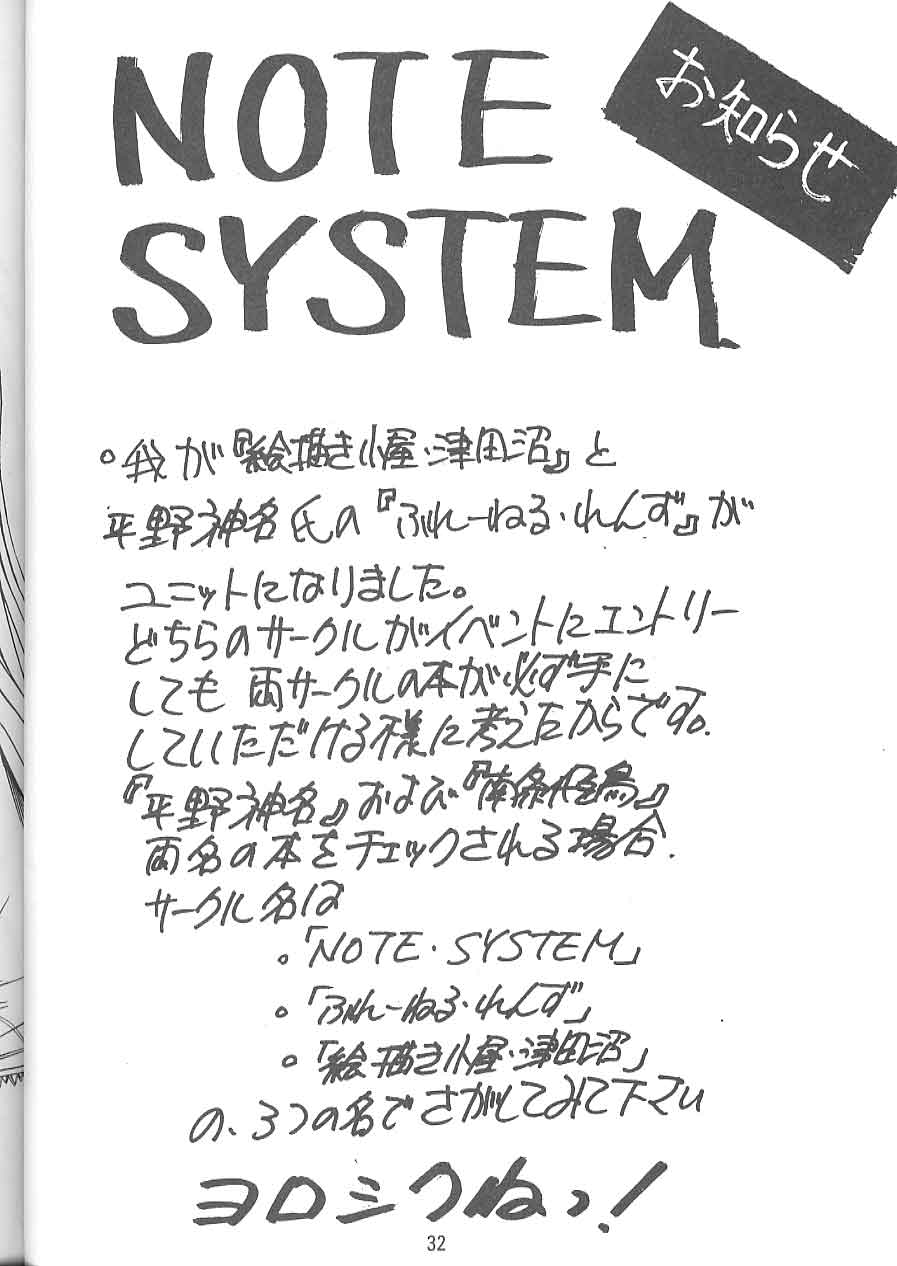 NOTE
SYSTEM
お知らせ
。我が『絵描き小屋・津田沼』と
平野神名氏の『ふれーねる・れんず』が
ユニットになりました。
どちらのサークルがイベントにエントリー
しても 両サークルの本が必ず手に
していただける様に考えたからです。
『平野神名』および『南条怪鳥』
両名の本をチェックされる場合、
サークル名は
。「NOTE・SYSTEM」
。「ふれーねる・れんず」
。「絵描き小屋・津田沼」
の、3つの名でさがしてみて下さい
ヨロシクねっ!
32